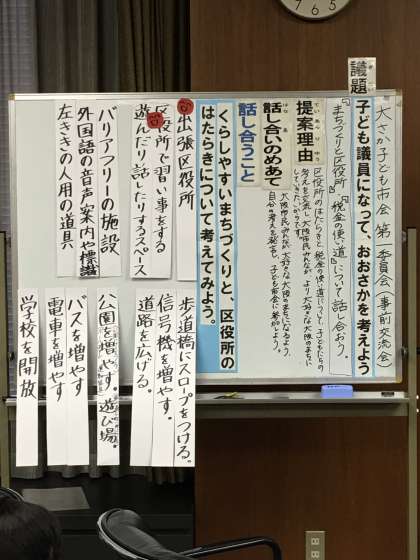 議題
大さか子ども市会 第一委員会(事前交流会)
子ども議員になって、おおさかを考えよう
「まちづくりと区役所」「税金の使い道」について話し合おう。
提案理由
区役所のはたらきと、税金の使い道について子どもたちの
考えを交流し、大阪市民みんなが、より大好きな大阪のまちに
していきたいから。
話し合いのめあて
大阪市民みんなが大好きな大阪のまちになるよう、
自分の考えを発言し、子ども市会に参加しよう。
話し合うこと
くらしやすいまちづくりと、区役所の
はたらきについて考えてみよう。
出張区役所
区役所で習い事をする
遊んだり話したりするスペース
バリアフリーの施設
外国語の音声案内や標識
左ききの人用の道具
歩道橋にスロープをつける。
信号機を増やす。
道路を広げる。
公園を増やす。遊び場。
バスを増やす
電車を増やす
学校を開放